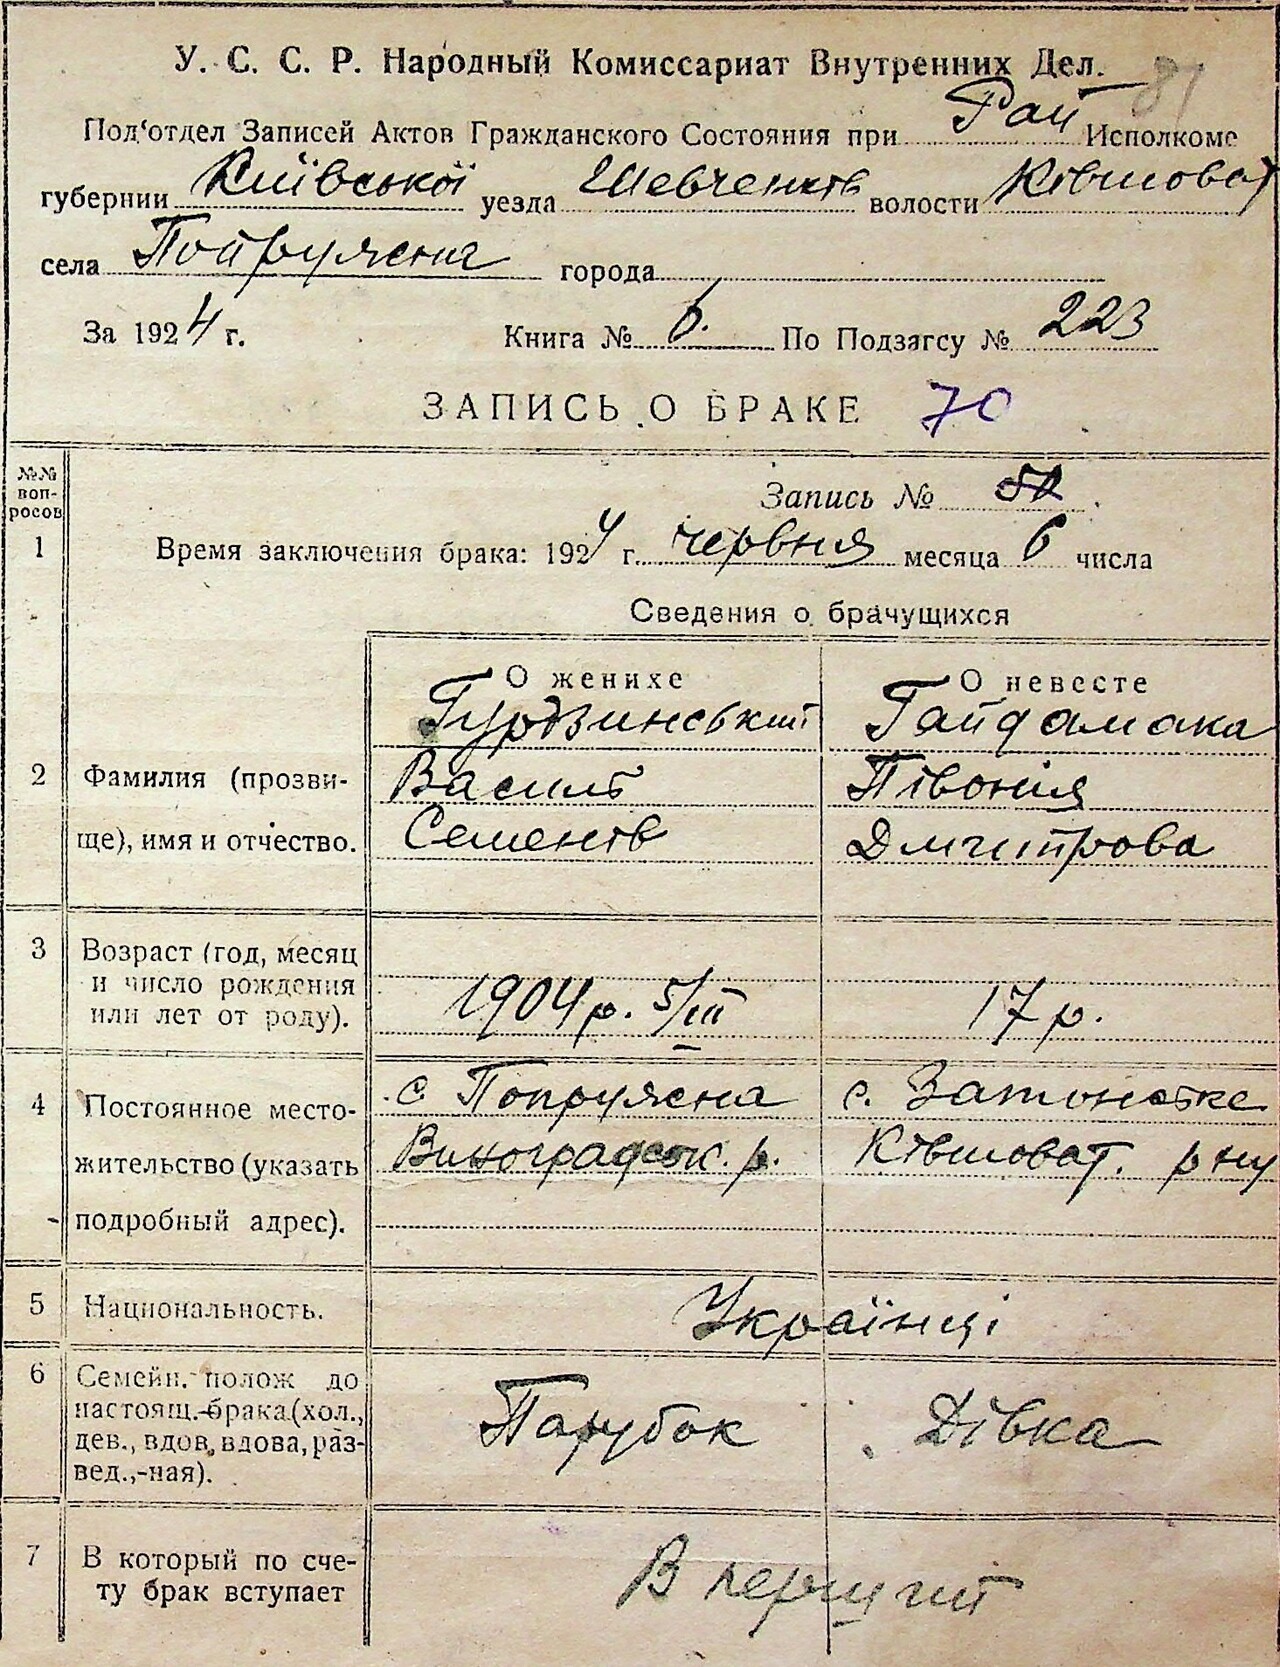 81
У. С. С. Р. Народный Комиссариат Внутренних Дел.
Под'отдел Записей Актов Гражданского Состояния при Рай Исполкоме
губернии Київської уезда Шевченків волости Ківшоват
села Попружена города
За 1924 г. Книга № 6. По Подзагсу № 223
ЗАПИСЬ О БРАКЕ 70
№№ вопросов
Запись №
1 Время заключения брака: 1924 г. червня месяца 6 числа
Сведения о брачущихся
О женихе О невесте
Гурдзинський Гайдамака
2 Фамилия (прозви- Василь Півонія
ще), имя и отчество. Семенів Дмитрова
3 Возраст (год, месяц
и число рождения 1904 р. 5/III 17 р.
или лет от роду).
4 Постоянное место- с. Попружена с.
жительство (указать Виноградськ. р. Ківшоват. р ну
подробный адрес).
5 Национальность. Українці
6 Семейн. полож до
настоящ. брака (хол., Парубок Дівка
дев., вдов, вдова, раз-
вед.,-ная).
7 В который по сче- В перший
ту брак вступает